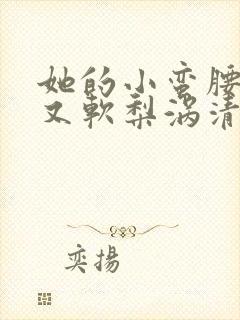 她的小蛮腰
又軟梨涡清
奕揚